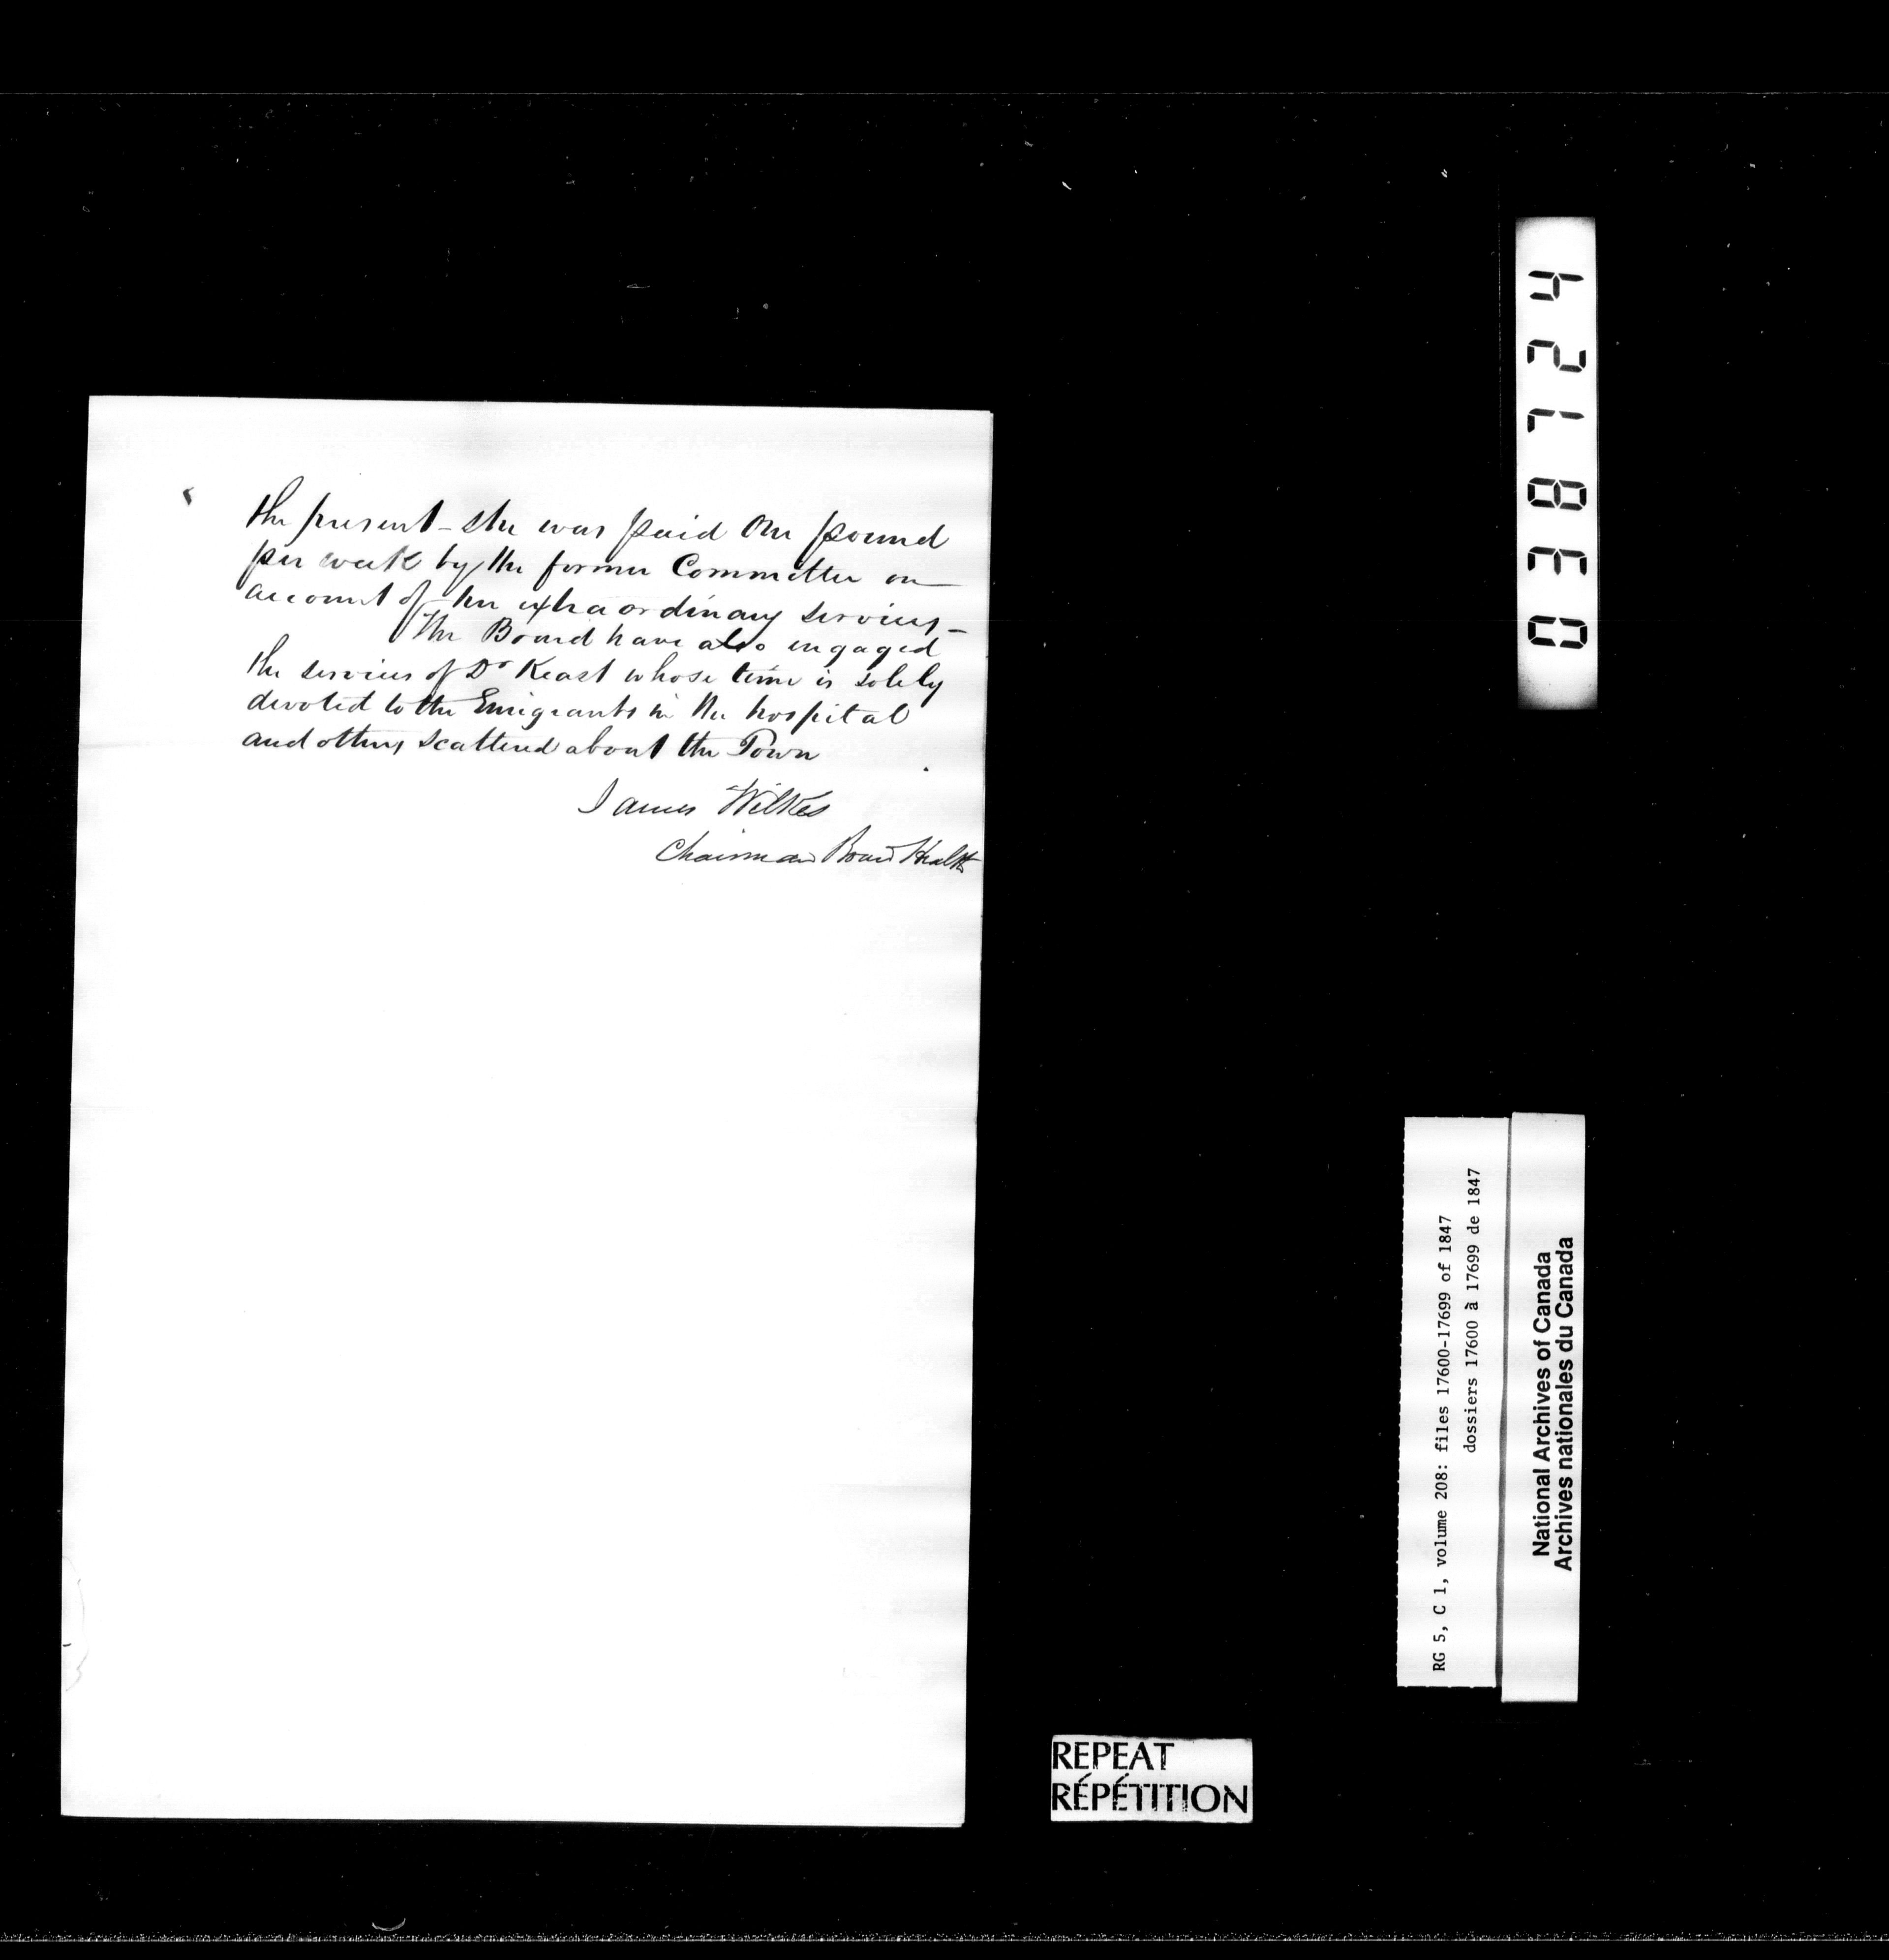 the present - she was paid One pound
per week by the former Committee on
account of her extraordinary services -
The Board have also engaged
the services of Dr Keast whose time is solely
devoted to the Emigrants in the hospital
and others scattered about the Town
James Wilkes
Chairman Board Health
038124
RG 5, C 1, volume 208: files 17600-17699 of 1847
dossiers 17600 à 17699 de 1847
National Archives of Canada
Archives nationales du Canada
REPEAT
RÉPÉTITION